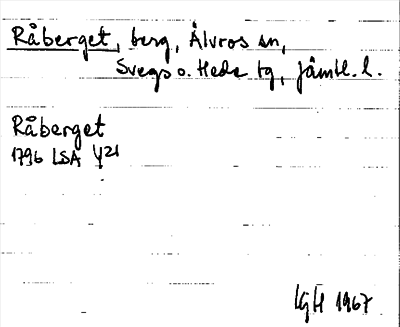 Råberget, berg, Älvros sn,
Svegs o. Heds tg, Jämtl. l.
Råberget
1796 LSA Y21
KgH 1967